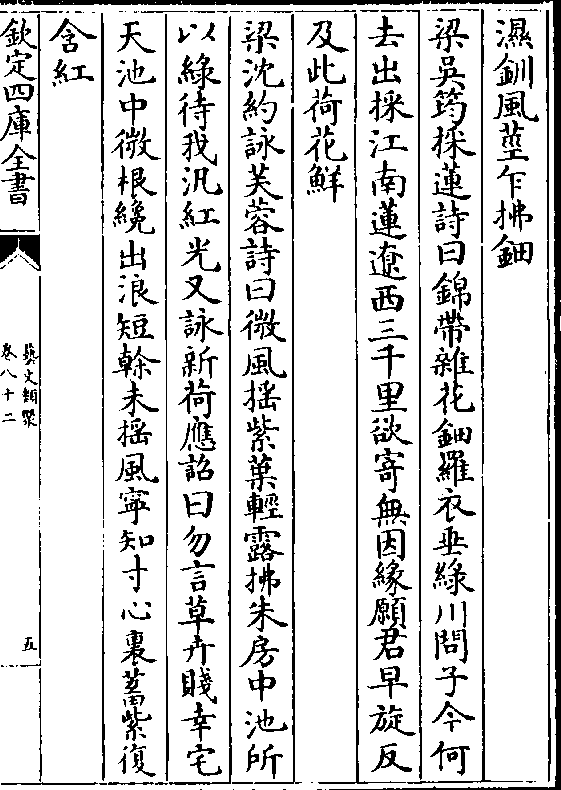 濕釧風莖乍拂鈿
梁吳筠採蓮詩曰錦帶雜花鈿羅衣垂綠川問子今何
去出採江南蓮遼西三千里欲寄無因緣願君早旋反
及此荷花鮮
梁沈約詠芙蓉詩曰微風揺紫葉輕露拂朱房中池所
以綠待我汎紅光又詠新荷應詔曰勿言草卉賤幸宅
天池中微根纔出浪短榦未揺風寧知寸心裏蓄紫復
含紅
欽定四庫全書
藝文類聚
卷八十二
五